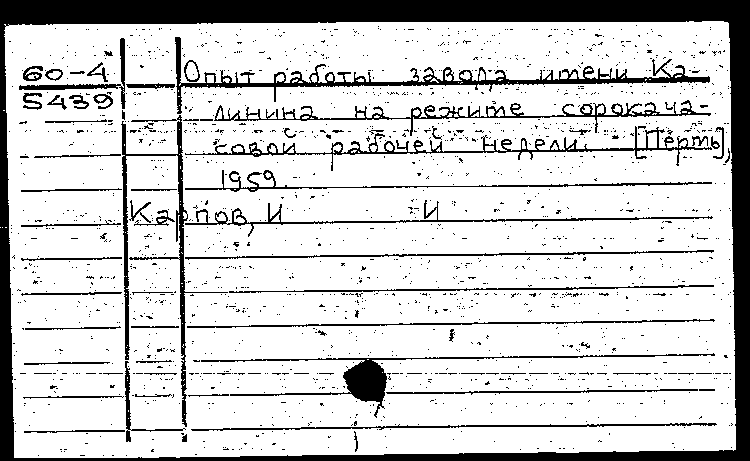 60-4
5439
Опыт работы завода имени Ка-
линина на режите сорокача-
совой рабочей недели. - [Перть],
1959.
Карпов, И И